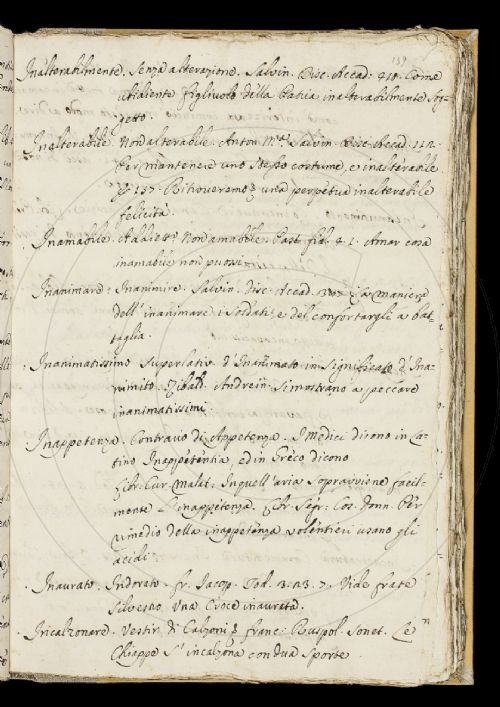 159
Inalterabilmente. Senza alterazione. Salvin. Disc. Accad. 410. Come
ubidiente figliuolo della Patria inalterabilmente sog-
getto.
Inalterabile. Non alterabile. Anton M.ª Salvin. Disc. Accad. 112.
Per mantenere uno stesso costume, e inalterabile
E 137. Ritroveremo una perpetua inalterabile
felicità.
Inamabile. Addiett. Non amabile. Past. fid. 4. 1. Amar cosa
inamabile non puossi
Inanimare. Inanimire. Salvin. disc. Accad. 307. La maniera
dell' inanimare i soldati, e del confortargli a bat-
taglia.
Inanimatissimo superlativ. d'Inanimato in significato d'Ina-
nimito. Zibald. Andrein. Si mostrano a peccare
inanimatissimi
Inappetenza. Contrario di Appetenza. I medici dicono in La-
tino Inappetentia, ed in Greco dicono
Libr. Cur. Malat. In quell'aria sopravviene facil-
mente l'inappetenza. Libr. Segr. Cos. Donn. Per
rimedio della inappetenza volentieri usano gli
acidi.
Inaurato. Indorato. fr. Jacop. Tod. 3. 23. 7. Vide frate
Silvestro Una Croce inaurata.
Incalzonare. Vestir di Calzoni. franc. Ruspol. Sonet. Le
Chiappe s'incalzona con dua sporte.